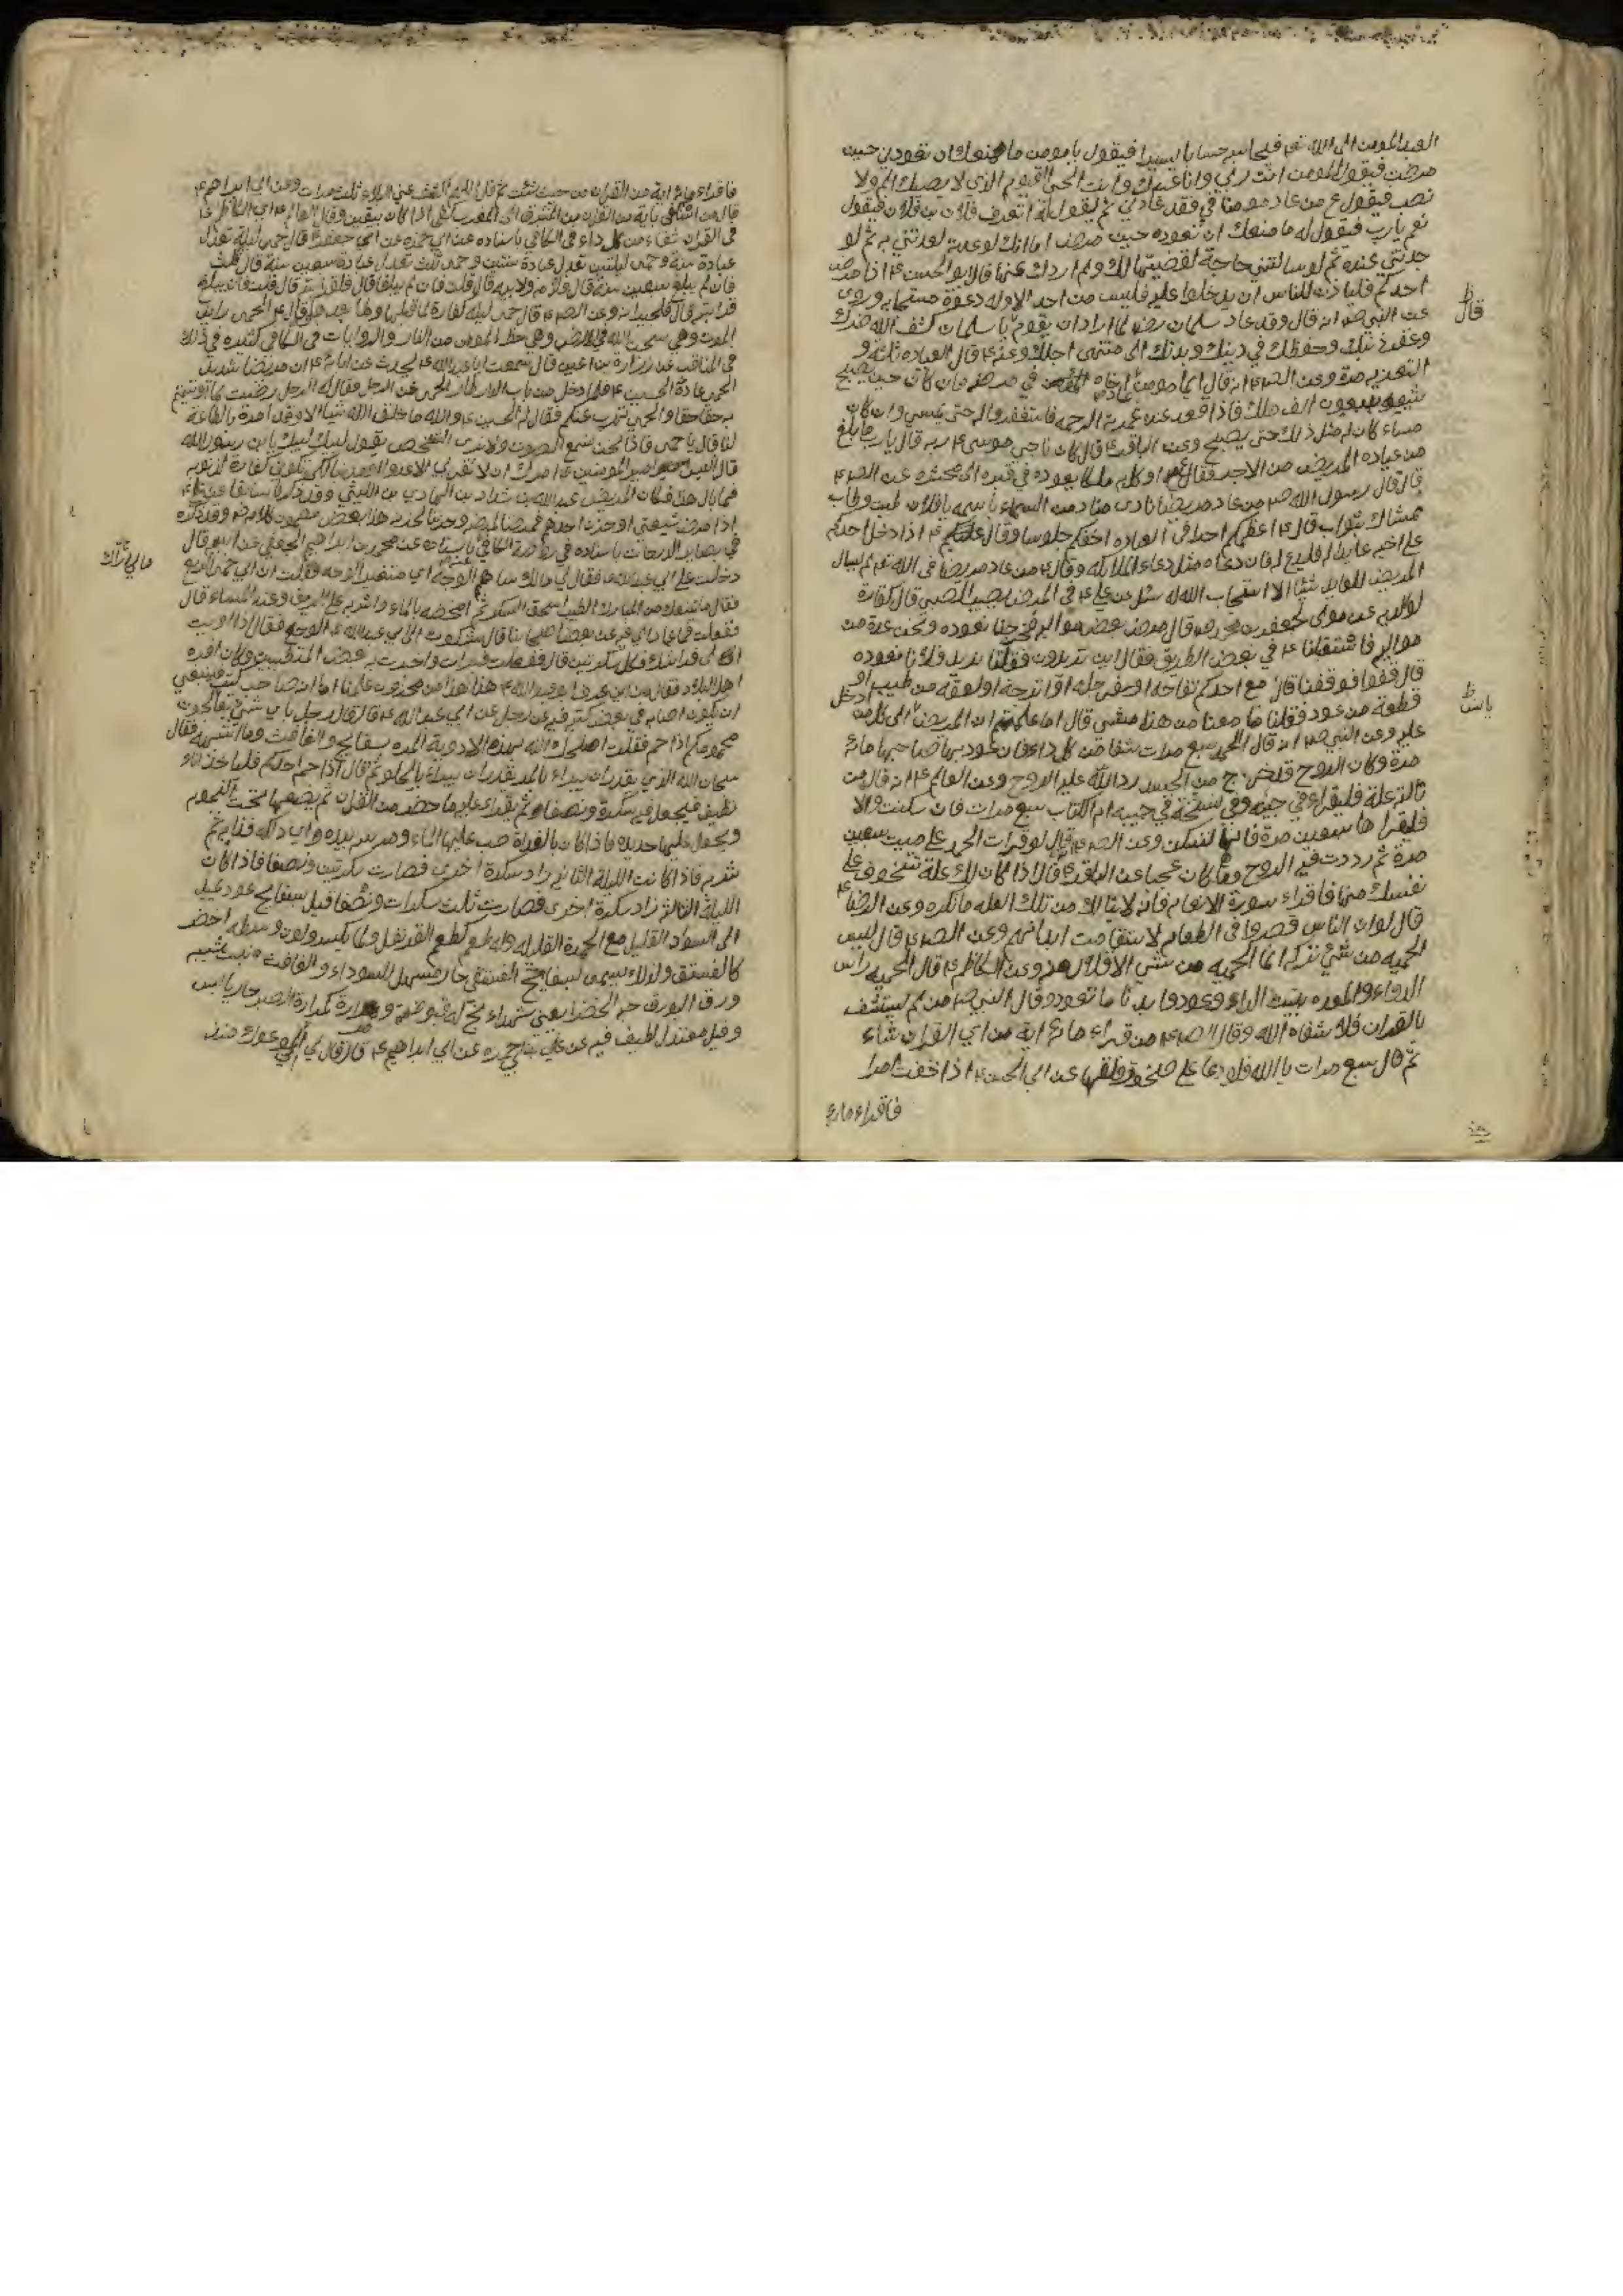 العبد المومن الى الله تع فيحاسبه حسابا يسيرا فيقول يا مومن ما منعك ان تعودني حين
مرضت فيقول المومن انت ربي وانا عبدك وانت الحي القيوم الذي لا يصيبك الم ولا
نصب فيقول ع من عاد مومنا في فقد عادني ثم يقول له اتعرف فلان بن فلان فيقول
نعم يا رب فيقول له ما منعك ان تعوده حين مرض اما انك لو عدته لعدتني به ثم لو
جدتني عنده ثم لو سالتني حاجة لقضيتها لك ولم اردك عنها قال ابو الحسن ع اذا مرض
احدكم فلياذن للناس ان يدخلوا عليه فليس من احد الا وله دعوة مستجابه وروى
عن النبي ص انه قال وقد عاد سلمان رض لما اراد ان يقوم يا سلمان كشف الله ضرك
وغفر ذنبك وحفظك في دينك وبدنك الى منتهى اجلك وعنه ع قال العياده ثلثة و
التعزيه مرة وعن الص ع انه قال ايما مومن عاد اخاه في مرضه فان كان حين يصبح
شيعه سبعون الف ملك فاذا قعد عنده غمرته الرحمه واستغفروا له حتى يمسي وان كان
مساء كان له مثل ذلك حتى يصبح وعن الباقر ع قال كان ناجى موسى ع ربه قال يا رب ما بلغ
من عياده المريض من الاجر فقال اوكل به ملكا يعوده في قبره الى محشره عن الص ع
قال قال رسول الله ص من عاد مريضا نادى مناد من السماء باسمه يا فلان طبت وطاب
ممشاك بثواب قال ع اعظمكم اجرا في العياده اخفكم جلوسا وقال ع اذا دخل احدكم
على اخيه عايدا له فليدع له فان دعاه مثل دعاء الملائكه وقال ع من عاد مريضا في الله تع لم يسال
المريض للعايد شيئا الا استجاب الله له سئل عن علي ع في المرض يصيب الصبي قال كفارة
لوالديه عن مولى لجعفر بن محمد ع قال مرض بعض مواليه فخرجنا نعوده ونحن عدة من
مواليه فاستقبلنا ع في بعض الطريق فقال اين تريدون فقلنا نريد فلانا نعوده
قال قفوا فوقفنا قال مع احدكم تفاحه او سفرجله او اترجة او لعقه من طيب او
قطعة من عود فقلنا ما معنا من هذا شيء قال اما علمتم ان المريض الى كل من ادخل
عليه وعن النبي ص انه قال الحمد سبع مرات شفا من كل داء فان عوذ بها صاحبها مائة
مرة وكان الروح قد خرج من الجسد رد الله عليه الروح وعن العالم ع انه قال من
نالته علة فليقرا في جيبه وفي نسخة في جيبه ام الكتاب سبع مرات فان سكنت والا
فليقرا ها سبعين مرة فانها تسكن وعن الص ع قال لو قرات الحمد على ميت سبعين
مرة ثم رددت فيه الروح ما كان عجبا عن الباقر ع قال اذا كان لك علة تتخوف على
نفسك منها فاقراء سورة الانعام فانه لا ينالك من تلك العله ما تكره وعن الرضا ع
قال لو ان الناس قصروا في الطعام لاستقامت ابدانهم وعن الص ع قال ليس
الحميه من شيء تركه انما الحميه من شيء الاقلال منه وعن الكاظم ع قال الحميه راس
الدواء والمعده بيت الداء وعودوا بدنا ما تعود وقال النبي ص من لم يستشف
بالقران فلا شفاه الله وقال الص ع من قراء مائة اية من اي القران شاء
ثم قال سبع مرات يا الله فلو دعا على صخرة فلقها عن ابي الحسن ع اذا خفت امرا
فاقراء مائة
قال
ياسا
فاقراء مائة اية من القران من حيث شئت ثم قل اللهم اكشف عني البلاء ثلث مرات وعن ابي ابراهيم ع
قال من استكفى باية من القران من المشرق الى المغرب كفى اذا كان بيقين وقال العالم ع اي الكاظم ع
في القران شفاء من كل داء في الكافي باسناده عن ابي حمزه عن ابي جعفر ع قال حمى ليلة تعدل
عبادة سنة وحمى ليلتين تعدل عبادة سنتين وحمى ثلث تعدل عبادة سبعين سنة قال قلت
فان لم يبلغ سبعين سنة قال فلامه ولابيه قال قلت فان لم يبلغا قال فلقرابته قال قلت فان يبلغ
قرابته قال فلجيرانه وعن الص ع قال حمى ليله كفارة لما قبلها ولما بعدها وقال ع الحمى رايد
الموت وهي سجن الله في الارض وهي حظ المومن من النار والروايات في الكافي كثيره في ذلك
في المناقب عن زراره بن اعين قال سمعت ابا عبد الله ع يحدث عن ابائه ع ان مريضا شديد
الحمى عادة الحسين ع فلما دخل من باب الدار طار الحمى عن الرجل فقال له الرجل رضيت بما اوتيتم
به حقا حقا والحمى تهرب عنكم فقال له الحسين ع والله ما خلق الله شيئا الا وقد امره بالطاعة
لنا قال يا حمى فاذا نحن نسمع الصوت ولا نرى الشخص يقول لبيك لبيك يا بن رسول الله
قال اليس امير المومنين ع امرك ان لا تقربي الا عدوا او مذنبا لكي تكوني كفارة لذنوبه
فما بال هذا فكان المريض عبد الله بن شداد بن الهادي بن الليثي
في بصاير الدرجات باسناده في روضة الكافي باسناده عن محمد بن ابراهيم الجعفي عن ابيه قال
دخلت على ابي عبد الله ع فقال لي مالك ساهم الوجه اي متغير الوجه فقلت ان ابي حمى الربع
فقال ما يمنعك من المبارك الطيب اسحق السكر ثم امخضه بالماء واشربه على الريق وعند المساء قال
ففعلت فما عادت الي عن بعض اصحابنا قال شكوت الى ابي عبد الله ع الوجع فقال اذا اويت
الى فراشك فكل سكرتين قال ففعلت فبرات واخبرت به بعض المتطببين وكان افره
اهل البلاد فقال من اين عرف ابو عبد الله ع هذا هذا من مخزون علمنا اما انه صاحب كتب فينبغي
ان يكون اصابه في بعض كتبه فيه عن رجل عن ابي عبد الله ع قال قال لرجل باي شيء تعالجون
محمومكم اذا حم فقلت اصلحك الله بهذه الادوية المره بسفايج والغافث وما اشبهه فقال
سبحان الله الذي يقدر ان يبراء بالمر يقدر ان يبراء بالحلو ثم قال اذا حم احدكم فلياخذ اناء
نظيف فيجعل فيه سكرة ونصفا ثم يقراء عليه ما حضر من القران ثم يضعها تحت النجوم
ويجعل عليها حديده فاذا كان بالغداة صب عليها الماء ومرسه بيده
شربه فاذا كانت الليلة الثانيه زاد سكرة اخرى فصارت سكرتين ونصفا فاذا كان
الليلة الثالثة زاد سكرة اخرى فصارت ثلث سكرات ونصفا قيل بسفايج عود يميل
الى السواد القليل مع الحمرة القليله وله طعم كطعم القرنفل ولما يكسر ولون وسطه اخضر
كالفستق ولذلك يسمى بسفايج الفستقي حار مسهل للسوداء والغافث نبت شبيه
ورق الورق حب الخضرا يعني شهداء نج له قبوضة ومرارة كمرارة الصبر حار يابس
وقيل معتدل لطيف فيه عن علي بن ابي حمزه عن ابي ابراهيم ع قال قال لي اني لموعوك منذ
مالي اراك